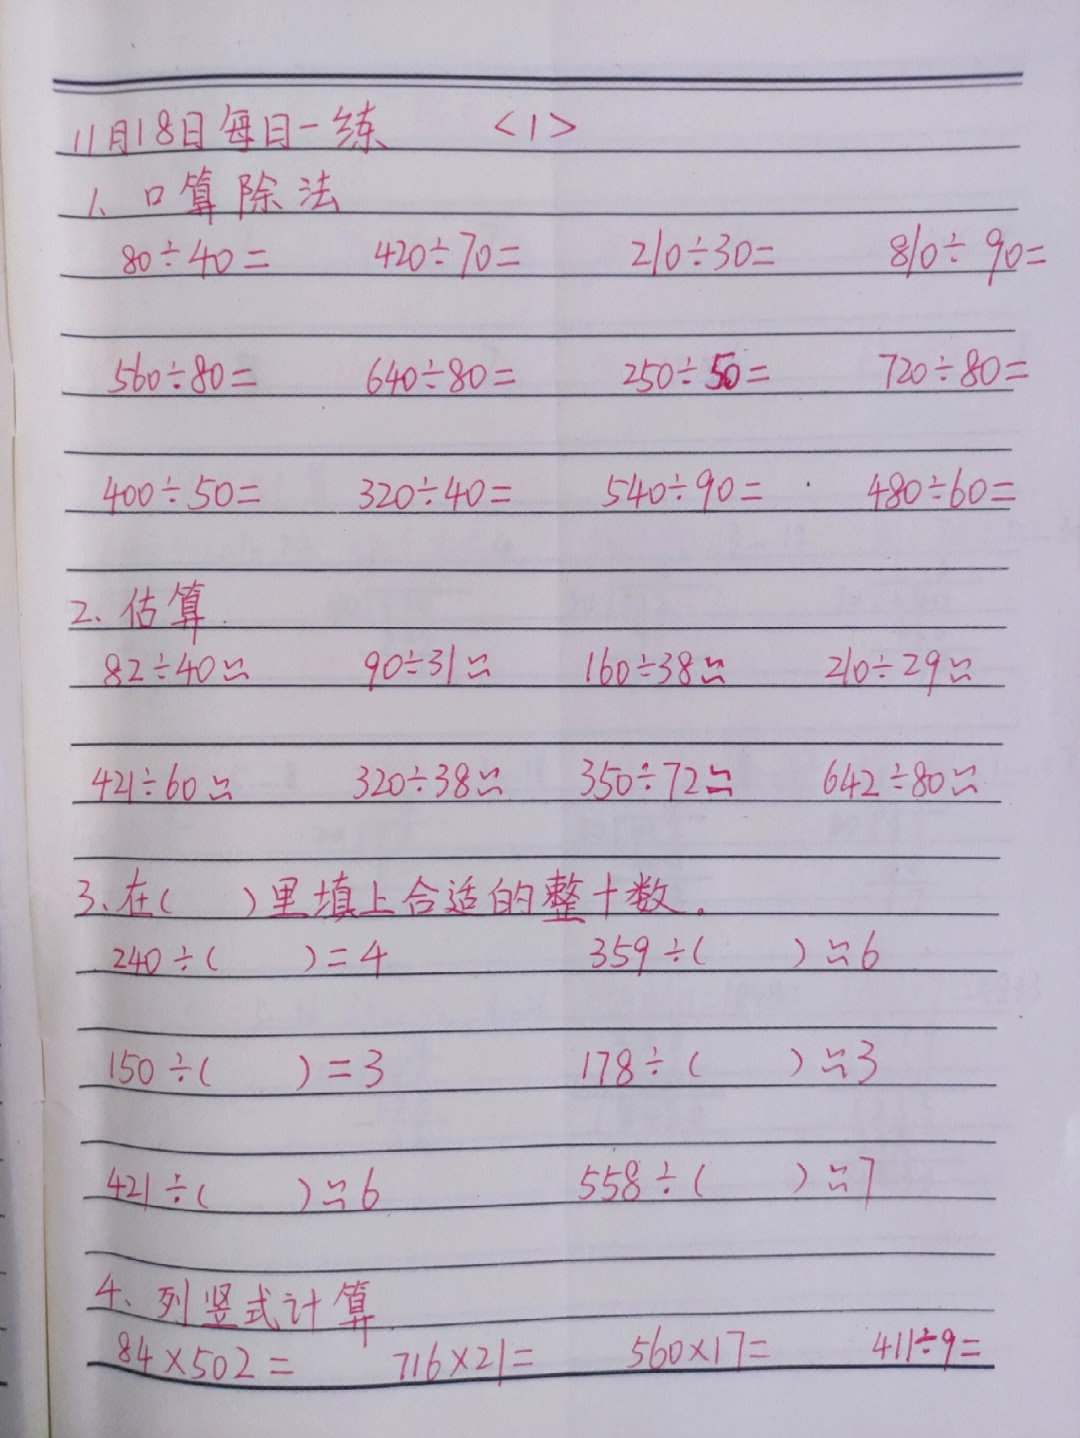 11月18日每日一练 <1>
1、口算除法
80÷40= 420÷70= 210÷30= 810÷90=
560÷80= 640÷80= 250÷50= 720÷80=
400÷50= 320÷40= 540÷90= 480÷60=
2、估算.
82÷40≈ 90÷31≈ 160÷38≈ 210÷29≈
421÷60≈ 320÷38≈ 350÷72≈ 642÷80≈
3、在( )里填上合适的整十数.
240÷( )=4 359÷( )≈6
150÷( )=3 178÷( )≈3
421÷( )≈6 558÷( )≈7
4、列竖式计算
84×502= 716×21= 560×17= 411÷9=